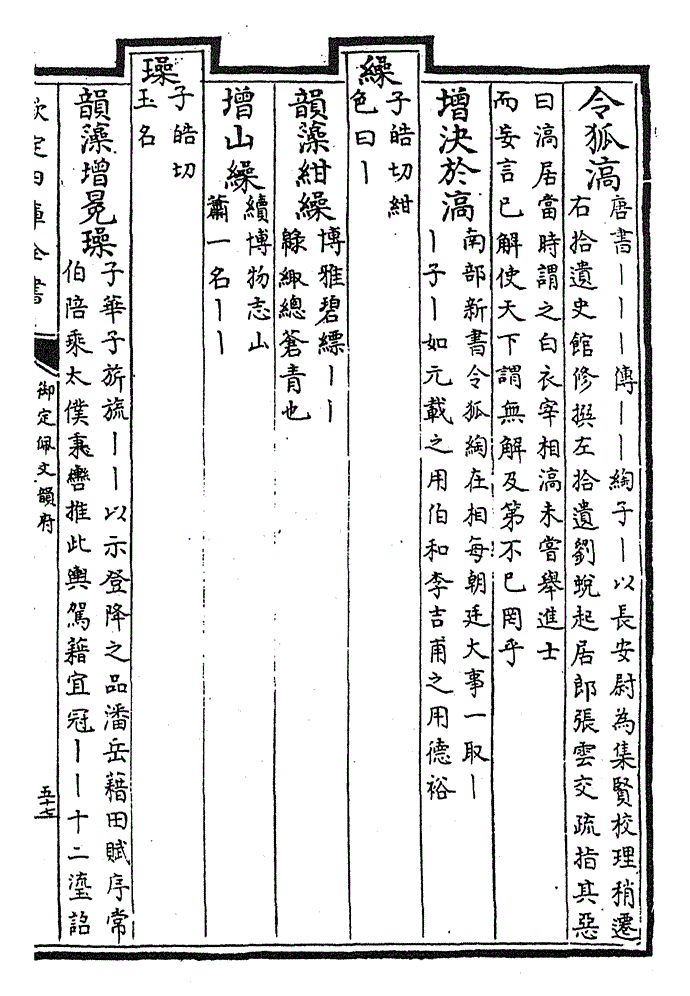 令狐滈唐書丨丨丨傳丨丨綯子丨以長安尉為集賢校理稍遷
右拾遺史館修撰左拾遺劉蛻起居郎張雲交疏指其惡
曰滈居當時謂之白衣宰相滈未嘗舉進士
而妄言已解使天下謂無解及第不已罔乎
增決於滈南部新書令狐綯在相每朝廷大事一取丨
丨子丨如元載之用伯和李吉甫之用德裕
繰子皓切紺
色曰丨
韻藻紺繰博雅碧縹丨丨
綠緅總蒼青也
增山繰續博物志山
蕭一名丨丨
璪子皓切
玉名
韻藻增冕璪子華子旂旒丨丨以示登降之品潘岳藉田賦序常
伯陪乘太僕秉轡推此輿駕藉宜冠丨丨十二瑬詔
欽定四庫全書
御定佩文韻府
五十七